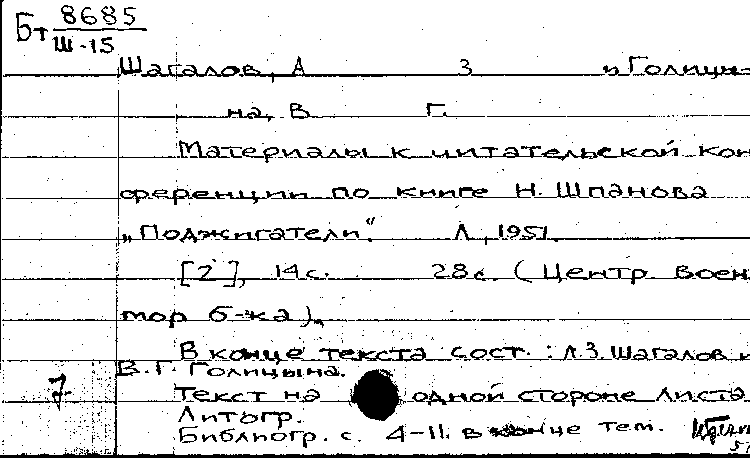 Бт 8685
Ш-15
Шагалов, А З и Голицы-
на, В Г.
Материалы к читательской кон
ференции по книге Н. Шпанова
„Поджигатели“. Л, 1951.
[2], 14 с. 28 с. (Центр воен
мор б-ка).
В конце текста сост.: Л.З. Шагалов и
В.Г. Голицына.
Текст на одной стороне листа
Литогр.
Библиогр. с. 4-11. в конце тем.